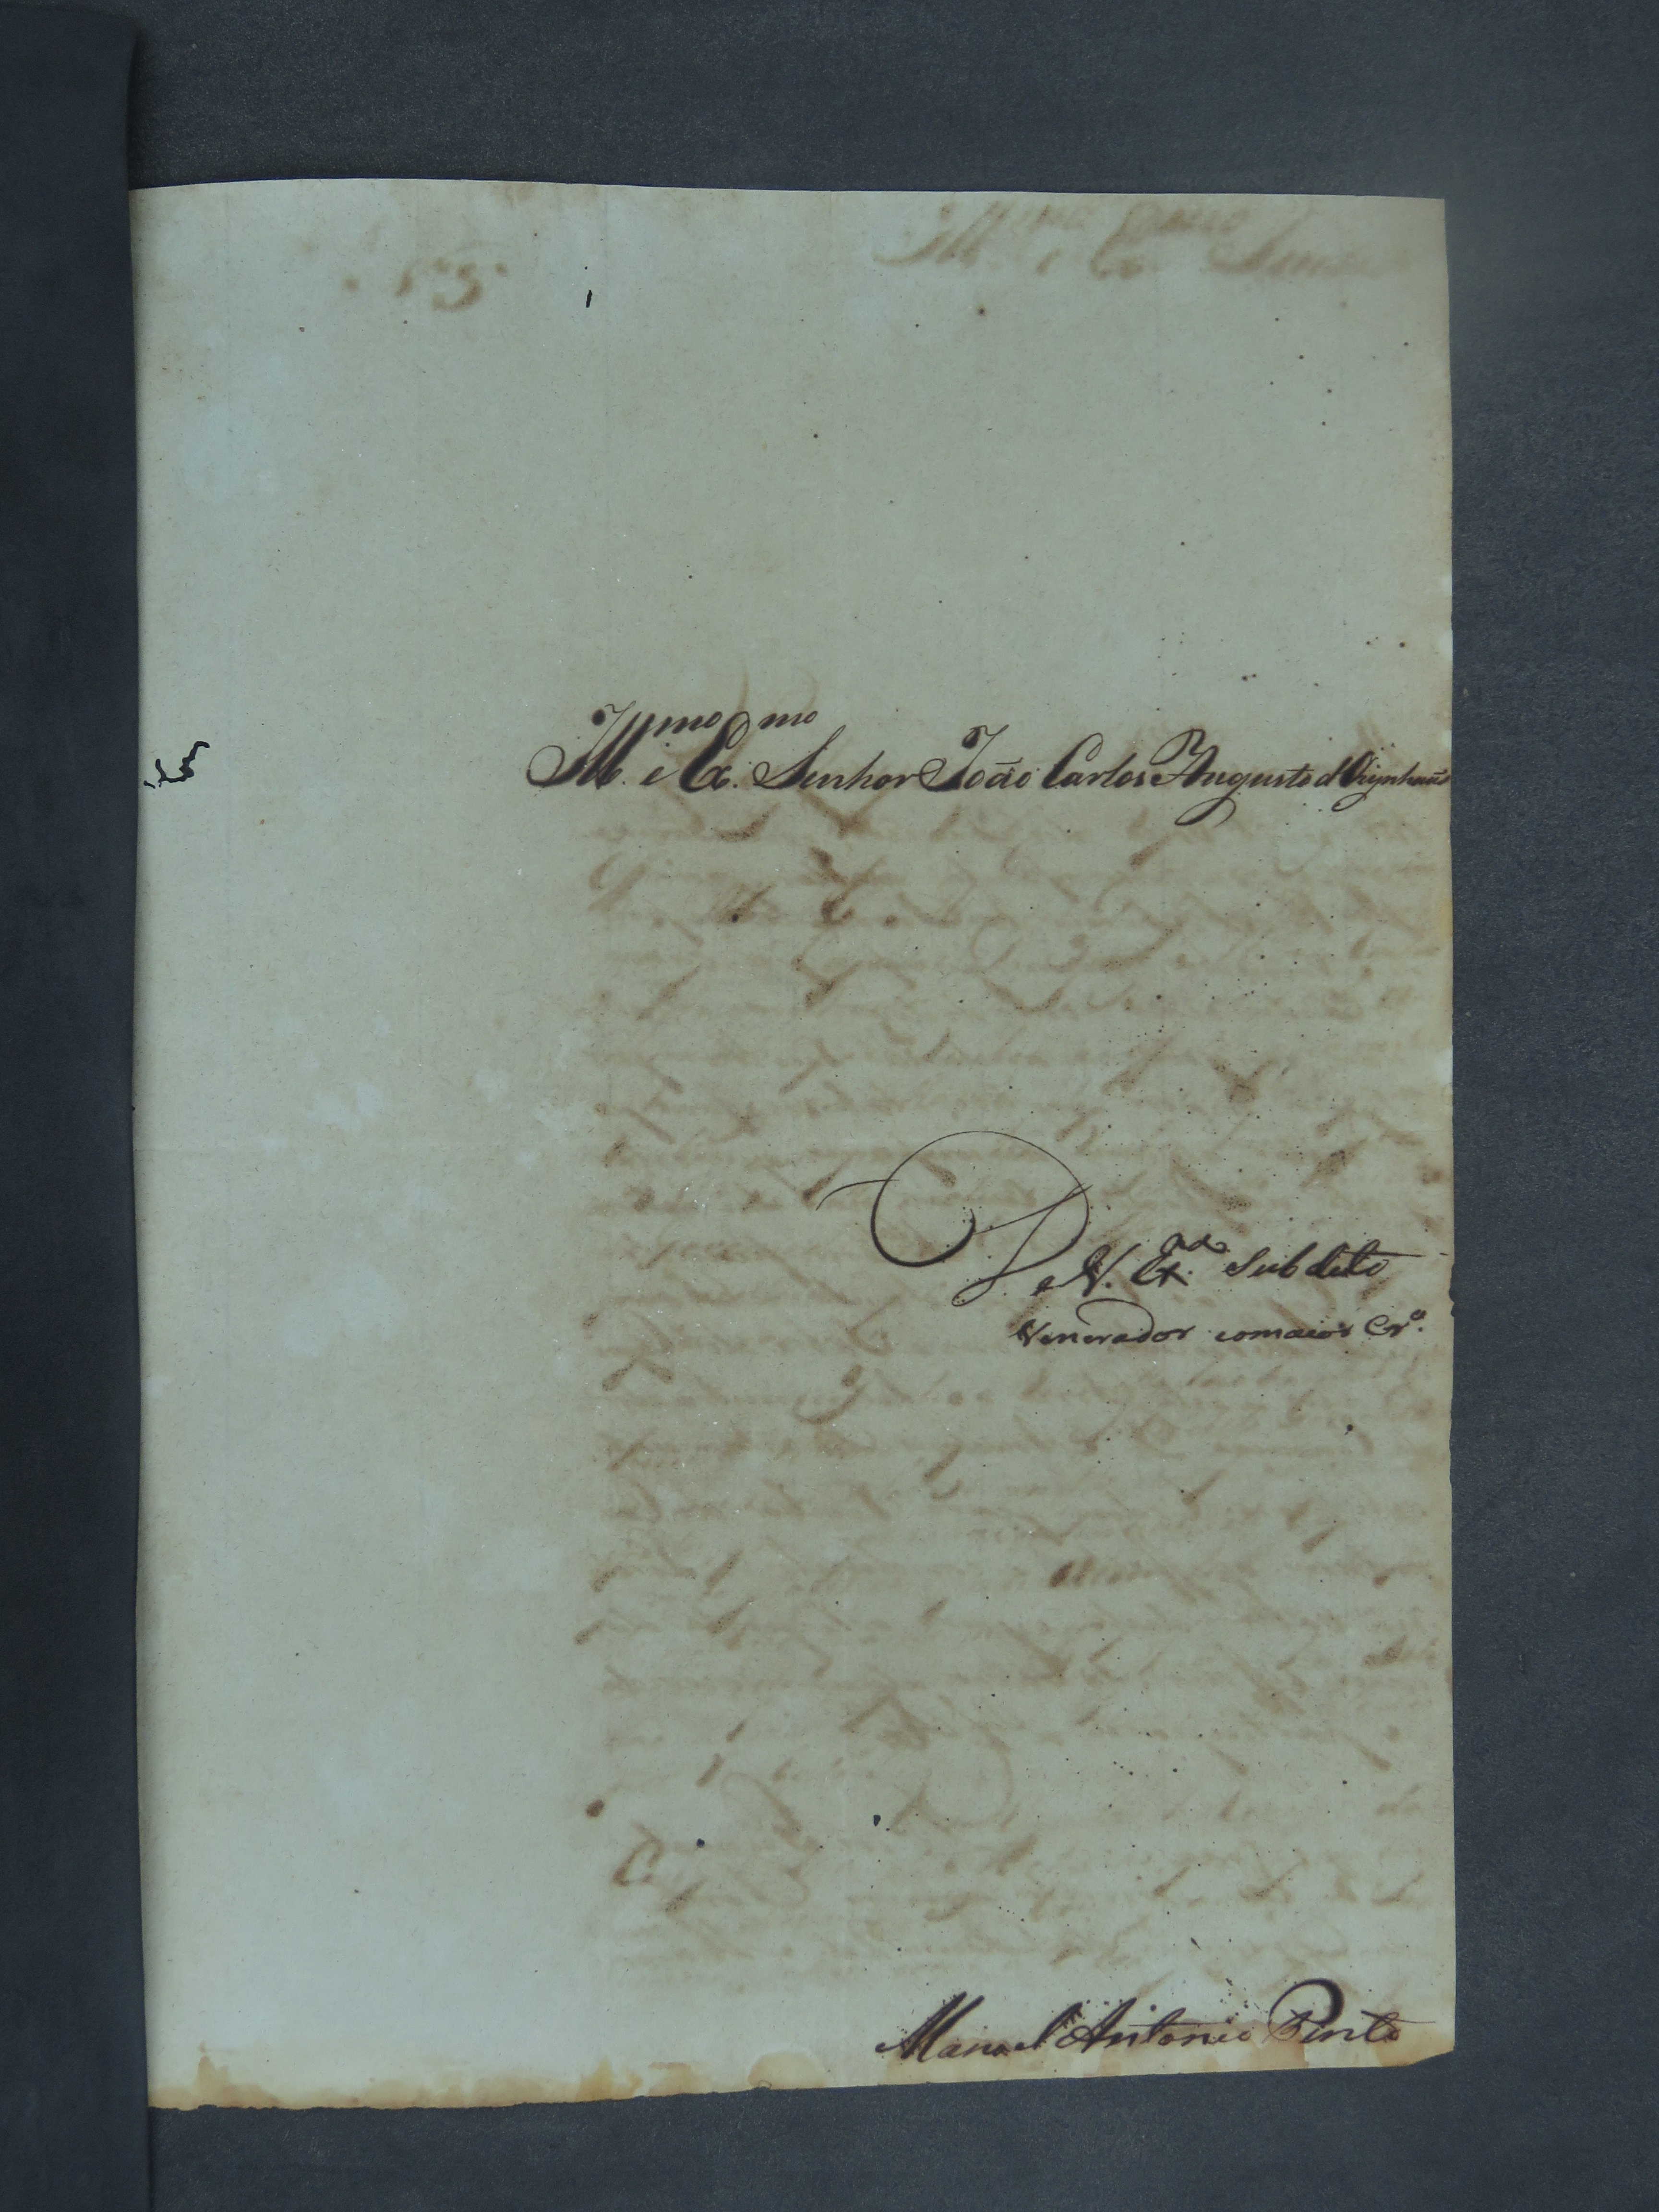 Ill.mo e Ex.mo Senhor João Carlos Augusto d'Oeynhausen
De V. Ex.a Subdito
Venerador e omaior Cr.o
Manoel Antonio Pinto